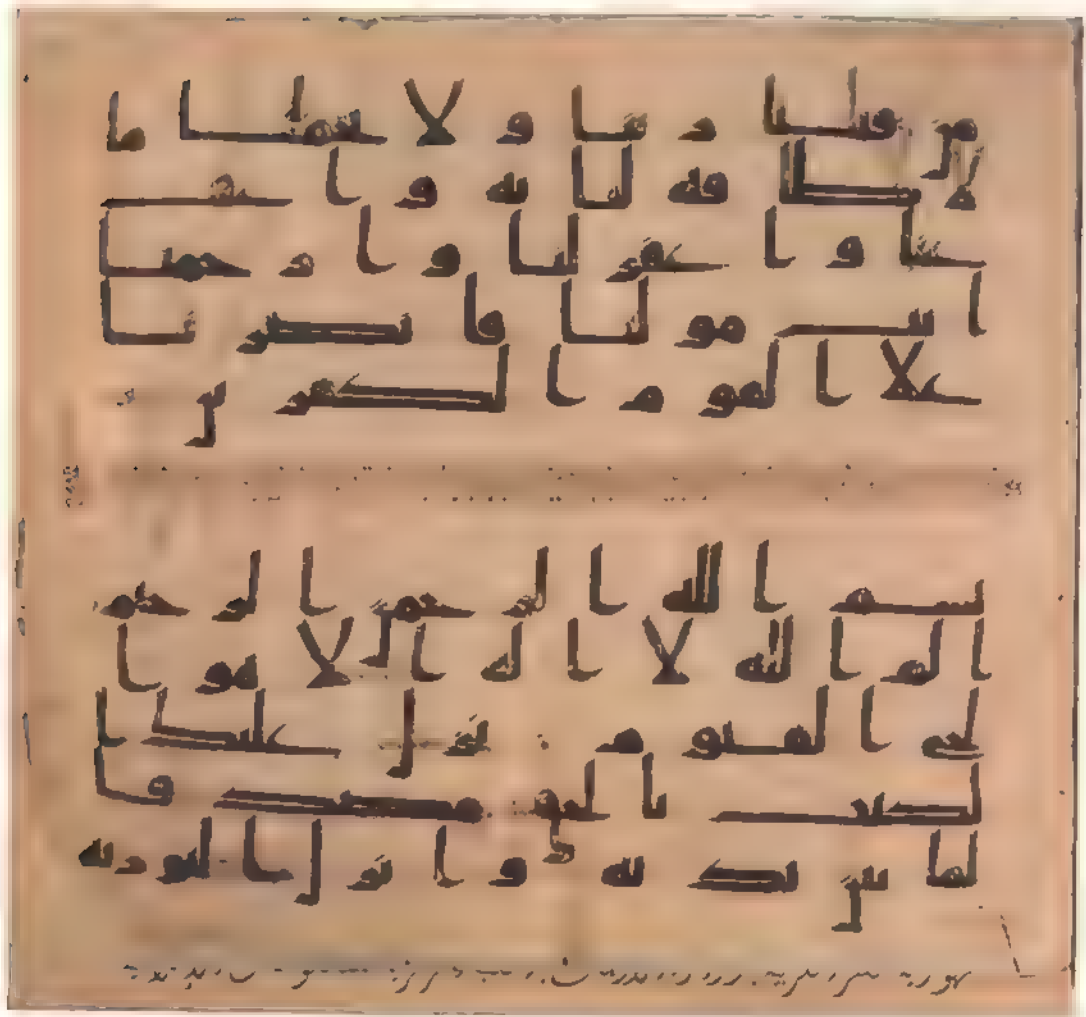 من قبلنا ربنا ولا تحملنا ما
لا طاقة لنا به واعف
عنا واغفر لنا وارحمنا
انت مولنا فانصرنا
على القوم الكفرين
بسم الله الرحمن الرحيم
الم الله لا اله الا هو ا
لحي القيوم نزل عليك ا
لكتب بالحق مصدقا
لما بين يديه وانزل التوريه